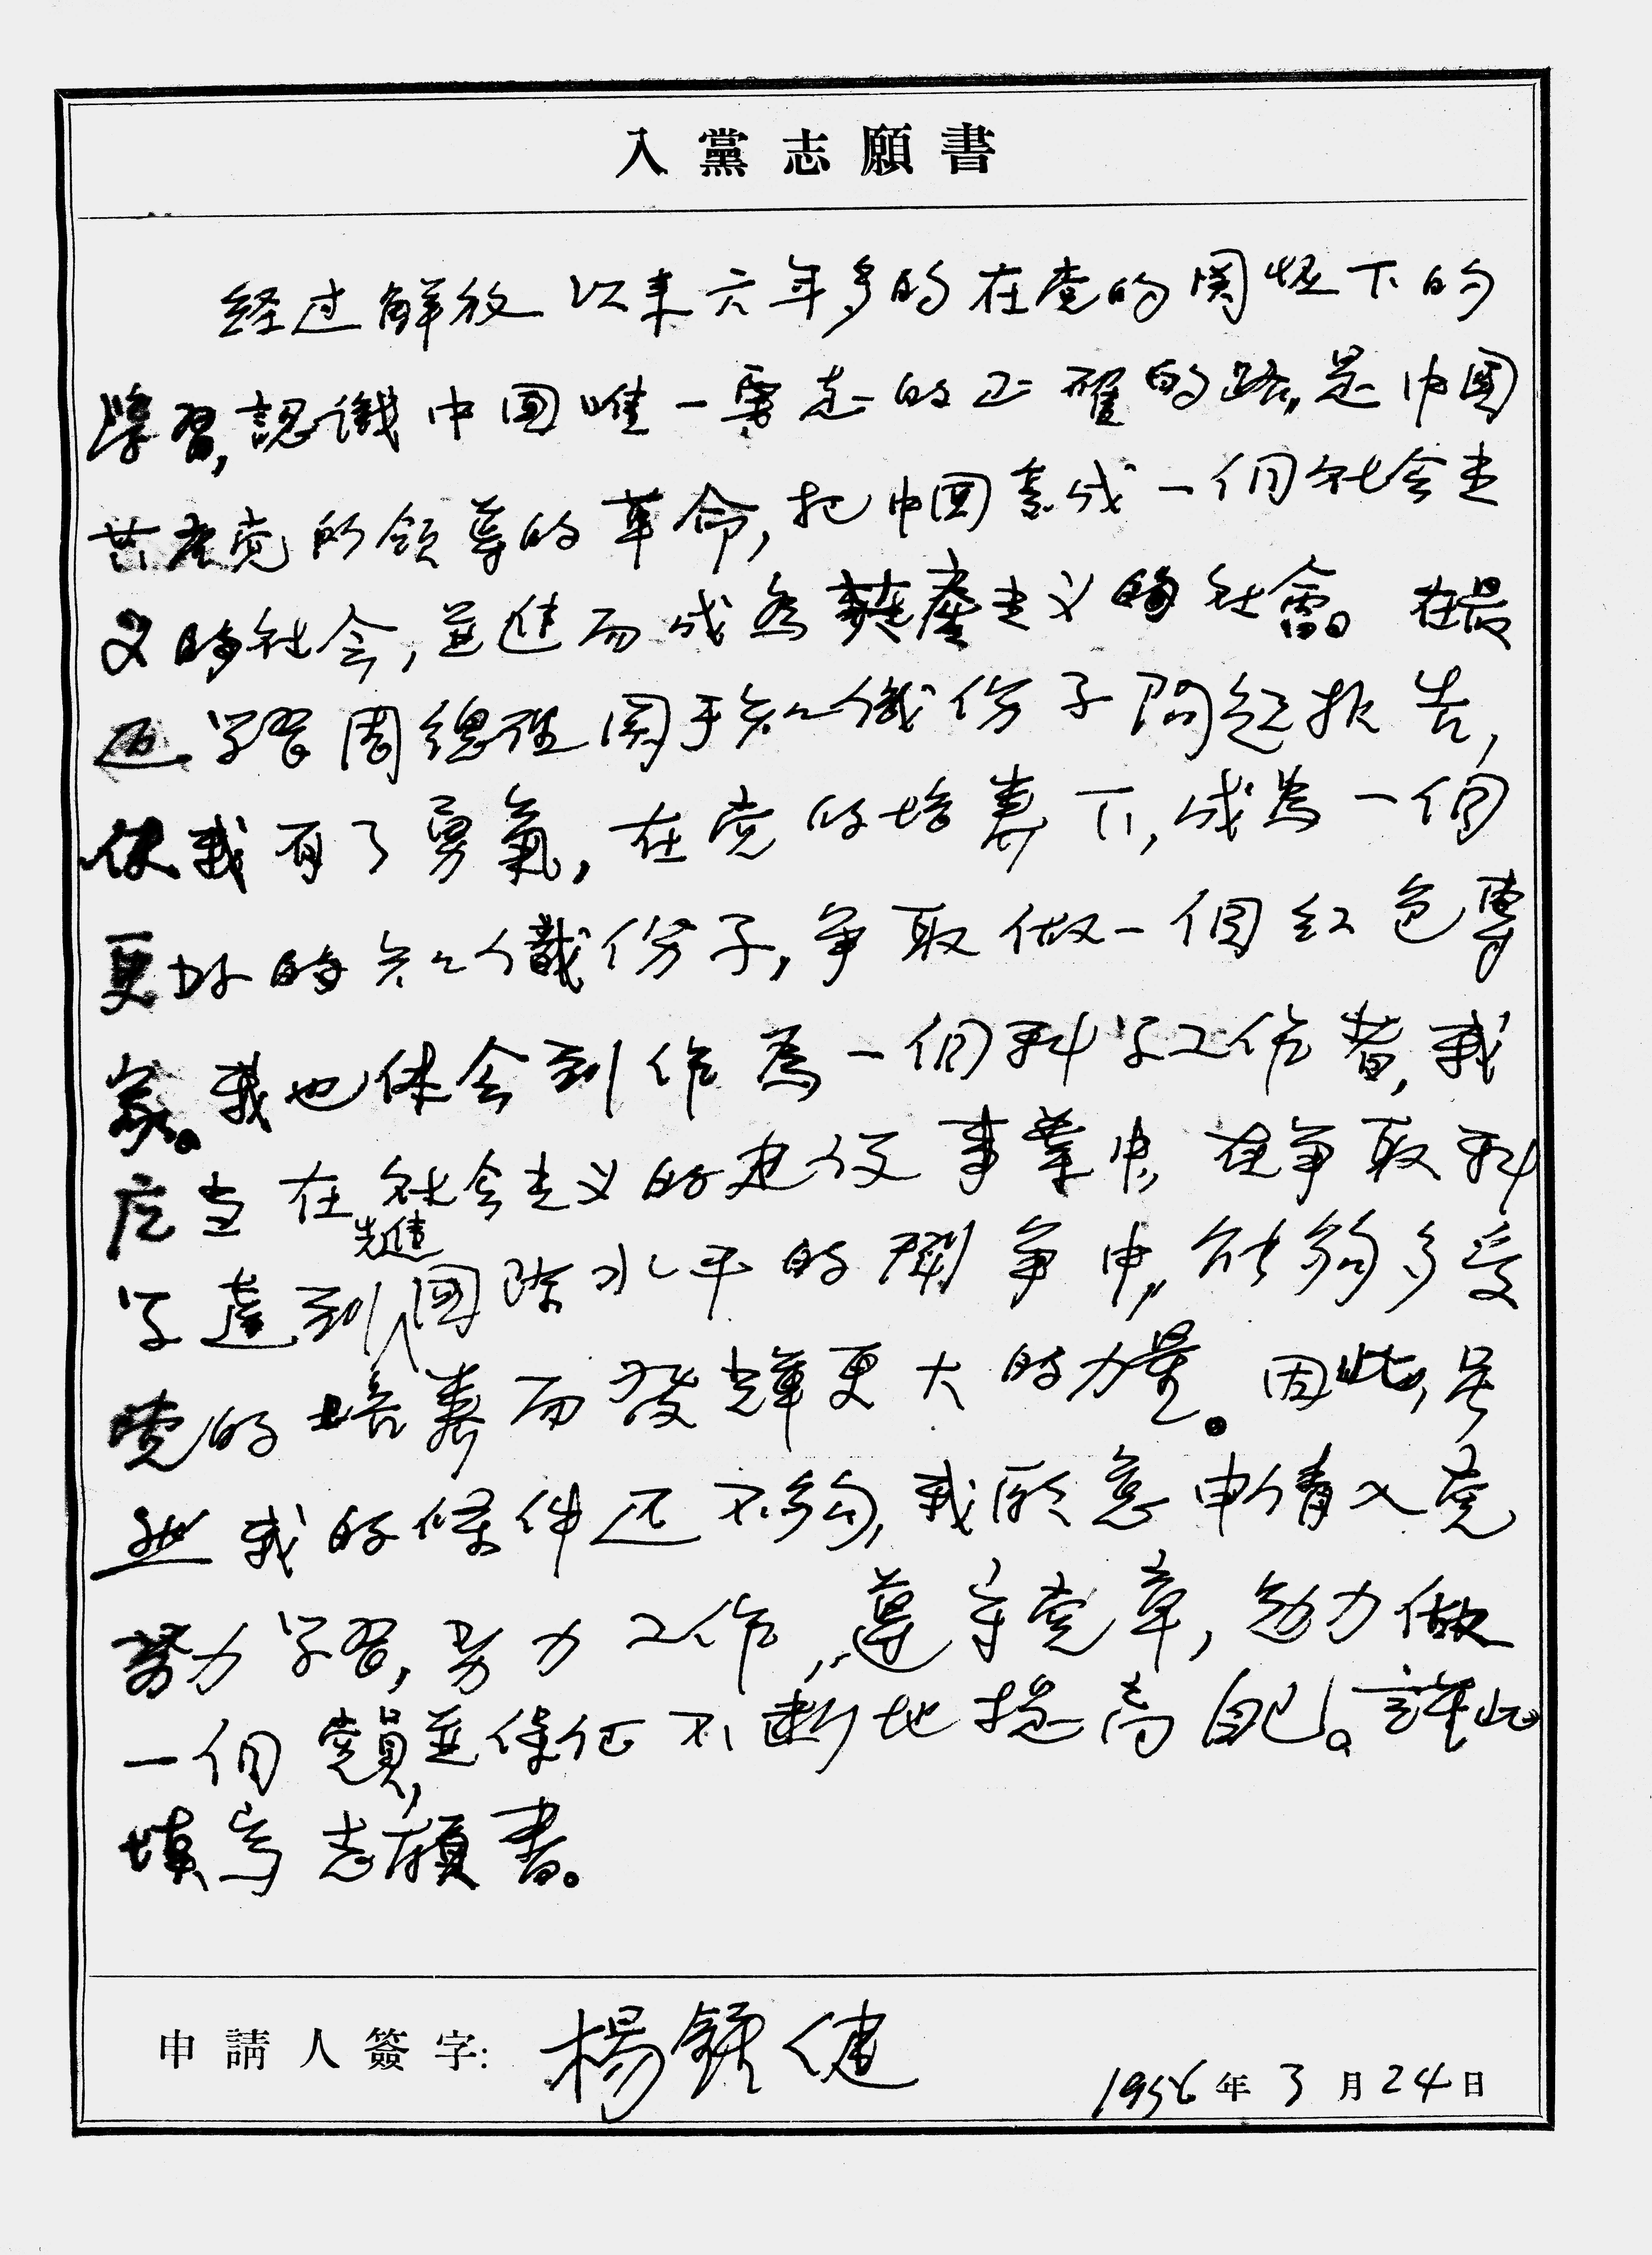 入黨志願書
经过解放以来六年多的在党的関怀下的
學習,認識中囯唯一要走的正確的路,是中国
共产党所領导的革命,把中国建成一個社会主
义的社会,並進而成為共產主义的社會。在最
近学習周總理関于知識份子問题报告,
使我有了勇氣,在党的培养下,成为一個
更好的知識份子,争取做一個红色專
家。我也体会到作為一個科学工作者,我
应当在社会主义的建设事業中,在争取科
学達到先進国際水平的鬥争中,能夠多受
党的培養而發揮更大的力量。因此,虽
然我的條件还不夠,我愿意申請入党
努力学習,努力工作,遵守党章,勉力做
一個黨員,並保证不断地提高自己。謹此
填写志願書。
申請人簽字:楊鍾健
1956年3月24日